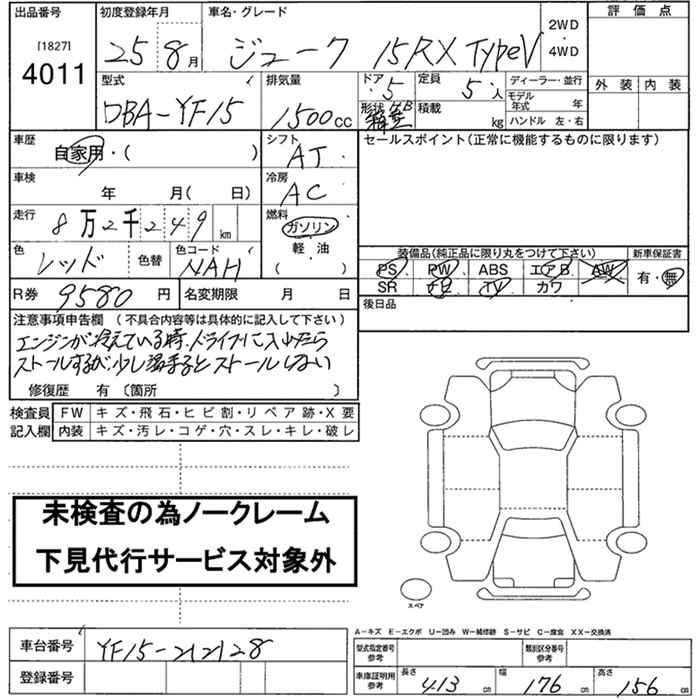 出品番号 初度登録年月 車名・グレード 2WD・4WD 評価点
[1827] 4011 25 8月 ジューク 15RX TypeV
外装 内装
型式 排気量 ドア 定員 ディーラー・並行
DBA-YF15 1500cc 5 5人 モデル年式 年
形状 積載 kg ハンドル 左・右
車歴 シフト セールスポイント(正常に機能するものに限ります)
自家用・( ) AT
車検 冷房
年 月( 日) AC
走行 燃料
8万2千249km ガソリン
色 色替 色コード 軽・油
レッド NAH ( )
装備品(純正品に限り丸をつけて下さい) 新車保証書
PS PW ABS エアB AW 有・無
SR ナビ TV カワ
R券 9580円 名変期限 月 日 後日品
注意事項申告欄(不具合内容等は具体的に記入して下さい)
エンジンが冷えている時、ドライブに入れたら
ストールするが、少し
ストールしない
修復歴 有 〔箇所 〕
検査員 FW キズ・飛石・ヒビ割・リペア跡・X要
記入欄 内装 キズ・汚レ・コゲ・穴・スレ・キレ・破レ
未検査の為ノークレーム
下見代行サービス対象外
スペア
A-キズ E-エクボ U-凹み W-補修跡 S-サビ C-腐食 XX-交換済
車台番号 YF15-212128
型式指定番号 参考 類別区分番号 参考
登録番号
車庫証明用 参考 長さ 413cm 幅 176cm 高さ 156cm